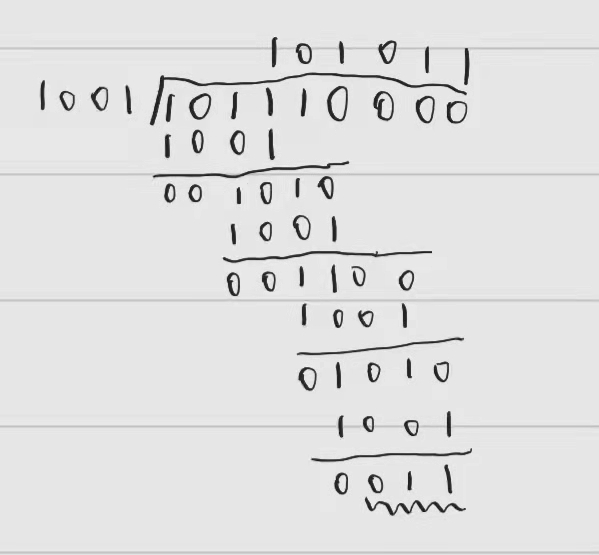 101011
1001 101110000
1001
001010
1001
001100
1001
01010
1001
0011